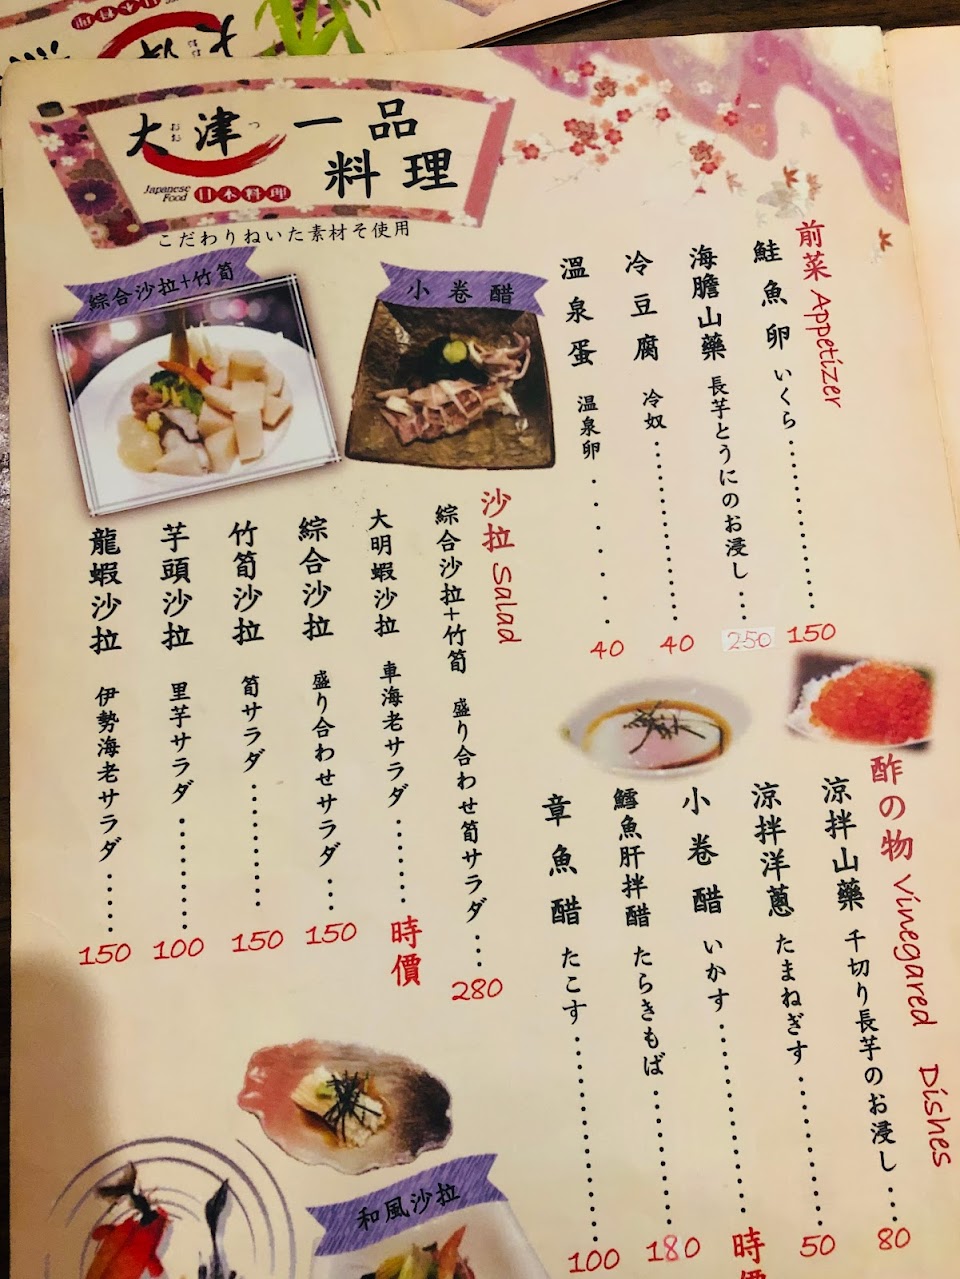 日本料理
大津
おお つ
一品
料理
Japanese
Food
日本料理
こだわりねいた素材そ使用
綜合沙拉+竹筍
小卷醋
前菜 Appetizer
鮭魚卵 いくら 150
海膽山藥 長芋とうにのお浸し 250
冷豆腐 冷奴 40
溫泉蛋 温泉卵 40
沙拉 Salad
綜合沙拉+竹筍 盛り合わせ筍サラダ 280
大明蝦沙拉 車海老サラダ 時價
綜合沙拉 盛り合わせサラダ 150
竹筍沙拉 筍サラダ 150
芋頭沙拉 里芋サラダ 100
龍蝦沙拉 伊勢海老サラダ 150
酢の物 Vinegared Dishes
涼拌山藥 千切り長芋のお浸し 80
涼拌洋蔥 たまねぎす 50
小卷醋 いかす 時價
鱈魚肝拌醋 たらきもば 180
章魚醋 たこす 100
和風沙拉